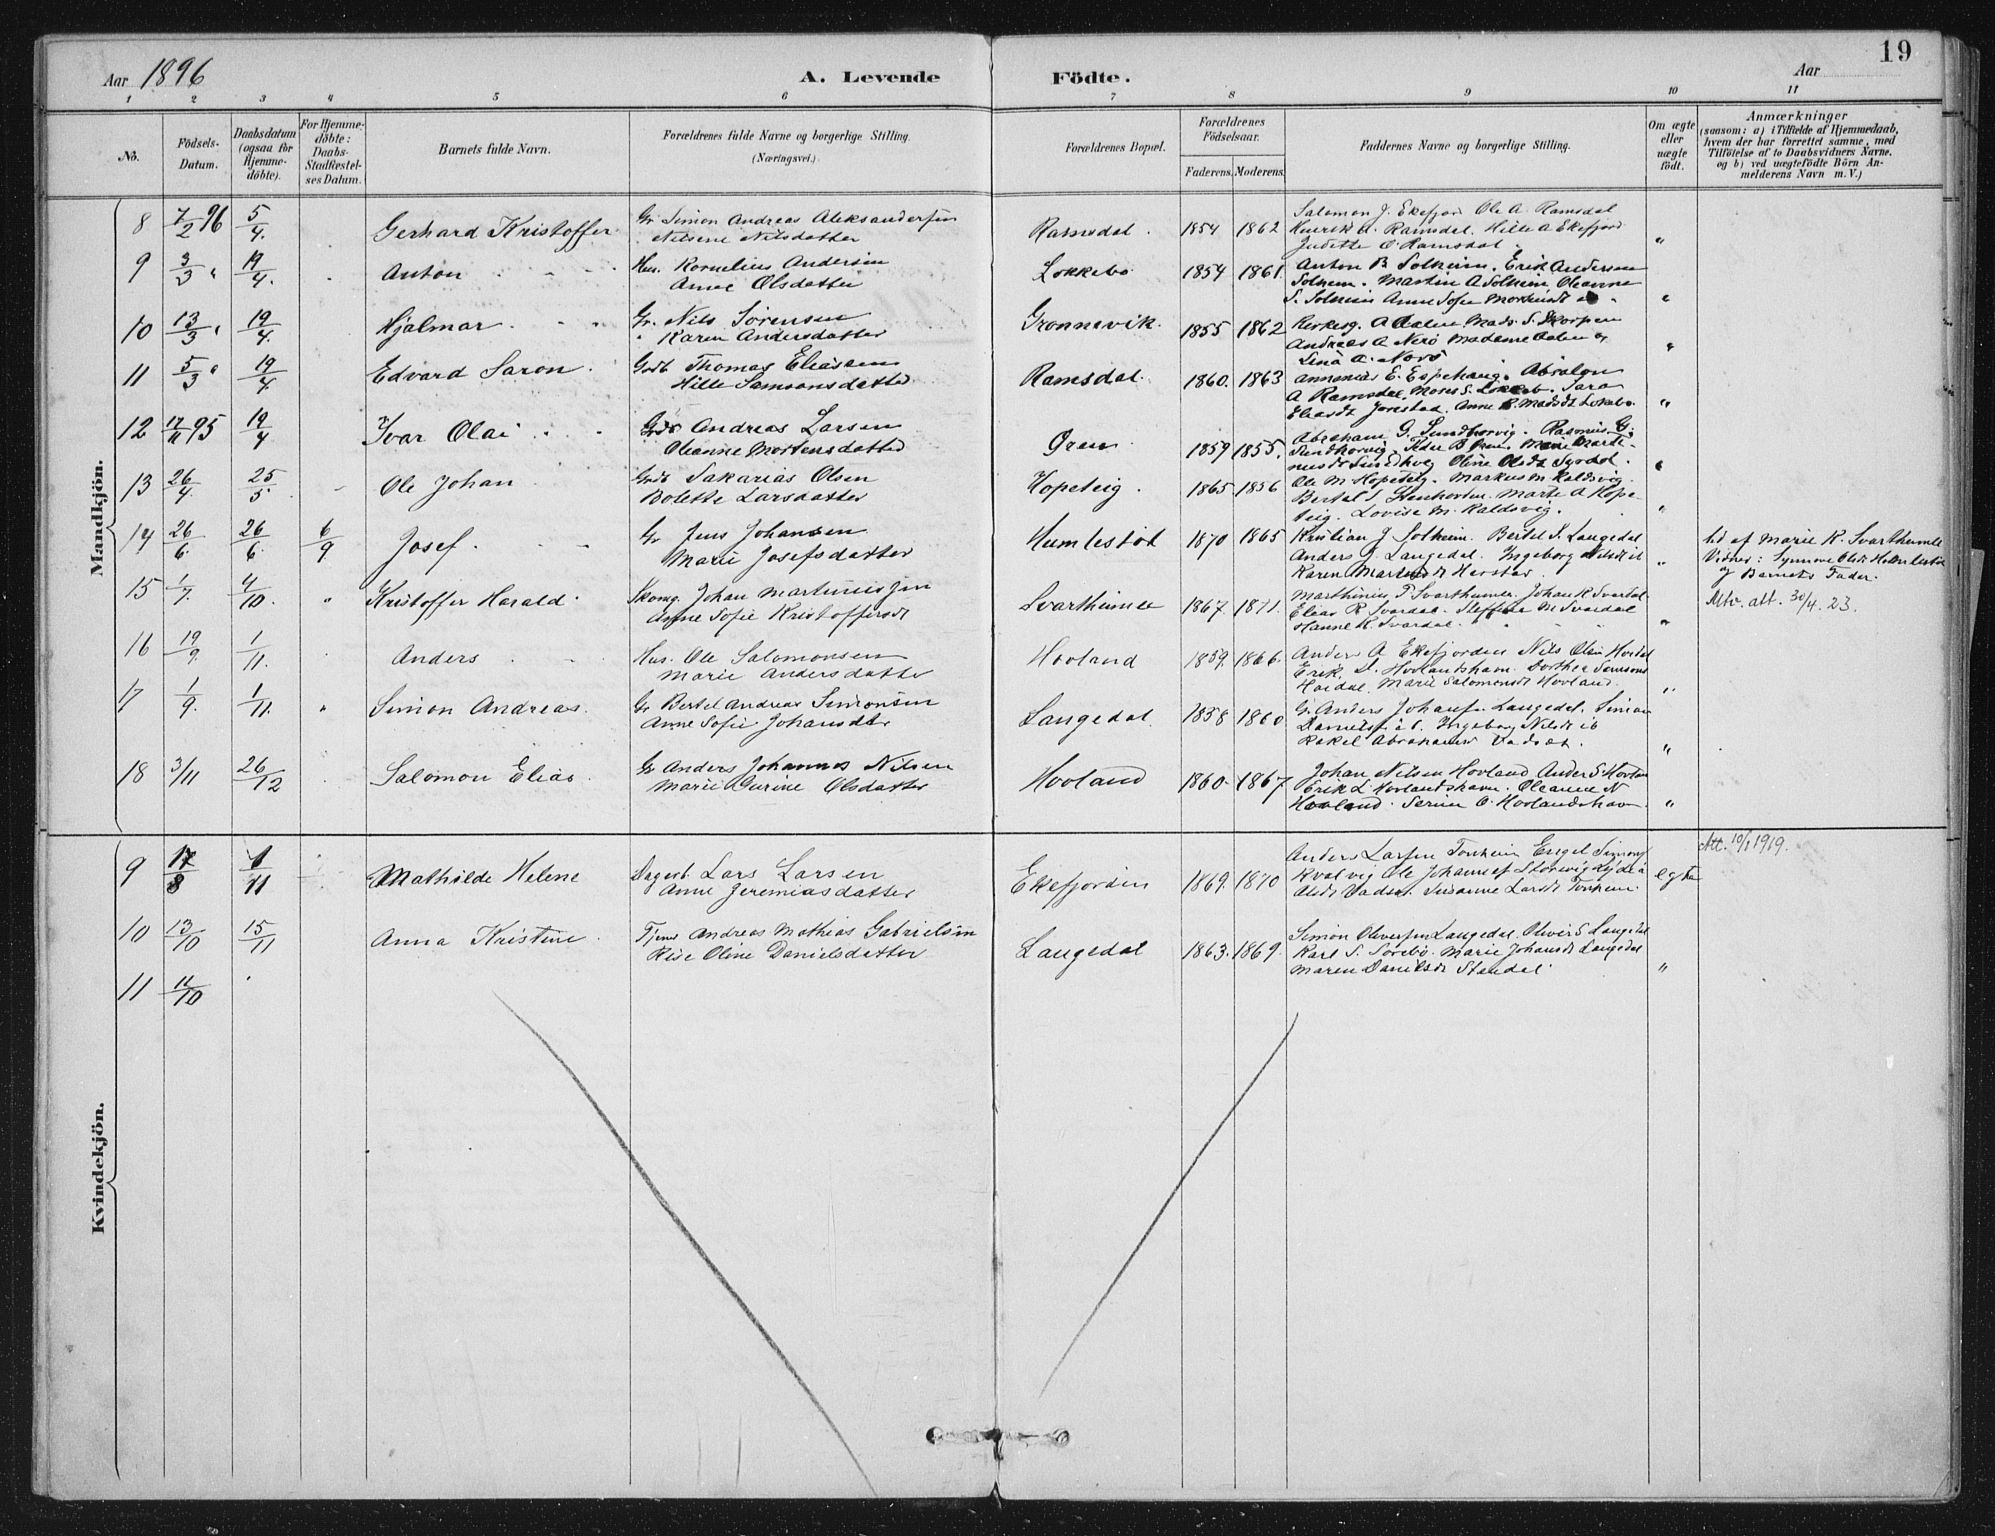 Aar 1896 A. Levende Födte. Aar 19
1 2 3 4 5 6 7 8 9 10 11
No. Födsels-Datum. Daabsdatum (ogsaa for Hjemme-döbte). For Hjemme-döbte: Daabs-Stadfæstel-ses Datum. Barnets fulde Navn. Forældrenes fulde Navne og borgerlige Stilling. (Næringsvei.) Forældrenes Bopæl. Forældrenes Födselsaar. Faderens. Moderens. Faddernes Navne og borgerlige Stilling. Om ægte eller uægte födt. Anmærkninger (saasom: a) i Tilfælde af Hjemmedaab, hvem der har forrettet samme, med Tilföielse af to Daabsvidners Navne. og b) ved uægtefödte Börn An-melderens Navn m. V.)
Mandkjön.
8 7/2 96 5/4. Gerhard Kristoffer Gr Simon Andreas Aleksandersen
Nilsine Nilsdatter Ramsdal. 1854 1862 Salomon J. Ekefjord Ole A. Ramsdal
Henrik A. Ramsdal. Hille A Ekefjord
Judette O. Ramsdal "
9 3/3 " 19/4. Anton Hus. Kornelius Andersen
Anne Olsdatter Løkkebø 1854 1861. Anton B Solheim. Erik Andersen
Solheim. Martin A Solheim Oleanne
S. Solheim Anne Sofie "
10 13/3 " 19/4. Hjalmar. Gr. Nils Sørensen
Karen Andersdatter Grønnevik. 1855 1862 Kirkesg. A Aalen Mads S. Skorpen
Andreas A Madame Aalen
Lina A. "
11 5/3 " 19/4 Edvard Saron. Grdb Thomas Eliasen
Hille Samsonsdatter Ramsdal. 1860. 1863 Annanias E. Espehaug. Absalon
A Ramsdal, Moses S. Løkkeb. Sara
Eliasdt Anne Madsdt Løkebø. "
12 17/11 95 19/4 Ivar Olai Grdb Andreas Larsen
Oleanne Mortensdatter Øren 1859 1855. Abraham G. Sundhovvig. Rasmus G.
Oline Olsdt "
13 26/4 25/5 Ole Johan Grdb Sakarias Olsen
Bolette Larsdatter Hopeteig. 1865 1856 Ole M. Hopeteig. Markus M. Kaldsvig.
Bertel S Marte A Hope-
teig. Lovise M. Kaldsvig. "
14 26/6 26/6. 6/9 Josef. Gr Jens Johansen
Marie Josefsdatter Humlestøl 1870 1865 Kristian J Solheim. Bertel S. Langedal
Anders J. Langedal. Ingeborg Nilsdt ib
Karen Martinsdt " hd af Marie K. Svarthumle
Vidner: Synnøve Olsdt Humlestøl
og Barnets Fader.
15 1/7. 4/10. " Kristoffer Harald. Skomg. Johan Martinussen
Anne Sofie Kristoffersdt Svarthumle 1867. 1871. Marthinus T. Svarthumle. Johan K Svardal
Elias R Svardal. Steffine M Svardal
Hanne K. Svardal. " Atte. att. 30/4. 23.
16 19/9. 1/11. Anders Hus. Ole Salomonsen
Marie Andersdatter Hovland 1859. 1866. Anders A Ekefjorden Nils Olsen
Erik L. Hovlandshavn. Dorthea Samsond
Marie Salomonsdt Hovland. "
17 1/9. 1/11. " Simon Andreas. Gr Bertel Andreas Simonsen
Anne Sofie Johansdtr Langedal. 1858 1860 Gr. Anders Johans. Langedal. Simon
Danielss ib. Ingeborg Nilsdt ib
Rakel Abrahamsdt Vadset. "
18 3/11 26/12 Salomon Elias. Gr Anders Johannes Nilsen
Marie Gurine Olsdatter Hovland 1860. 1867 Johan Nilsen Hovland Anders Hovland
Erik L Hovlandshavn. Oleanne N
Hovland. Serine O. Hovlandshavn "
Kvindekjön.
9 17/8 1/11 Mathilde Helene Dagarb. Lars Larsen
Anne Jeremiasdatter Ekefjorden 1869. 1870 Anders Larsen Tonheim Engel Simons
Kvalvig Ole Johannes Storevig Lydia
Vadset. Susanne Larsdt Tonheim. egte Att. 10/1 1919.
10 13/10 15/11 Anna Kristine. Tjener Andreas Mathias Gabrielsen
Oline Danielsdatter Langedal 1863. 1869. Simon Oliversen Langedal Oliver S Langedal
Karl S. Sørebø. Marie Johansdt Langedal
Maren Danielsdt Standal "
11 12/10